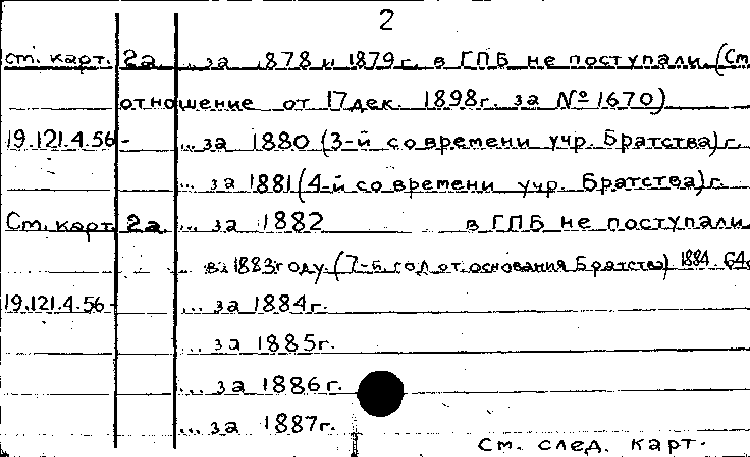 2
см. карт. 2а. ... за 1878 и 1879 г. в ГПБ не поступали. (См
отношение от 17 дек. 1898г. за № 1670)
19.121.4.56 - ... за 1880 (3-й со времени учр. Братства) г.
... за 1881 (4-й со времени учр. Братства) г.
См. карт 2а. ... за 1882 в ГПБ не поступали
... в 1883 году. (7-й год от основания Братства) 1884. 64с.
19.121.4.56 - ... за 1884г.
... за 1885г.
... за 1886г.
... за 1887г.
См. след. карт.